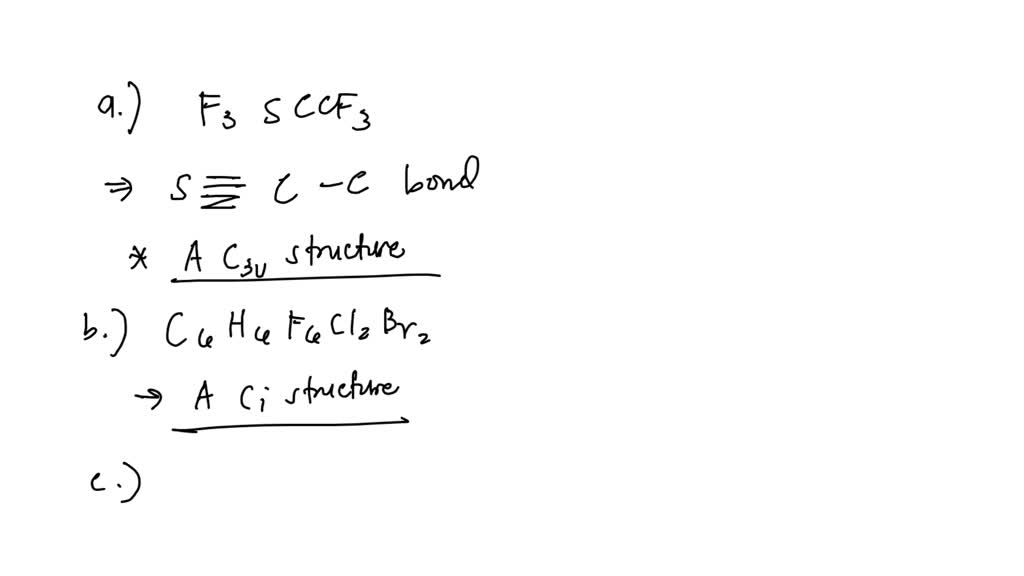 a.) F₃ S C C F₃
⇒ S ≡ C - C bond
* A C₃ᵥ structure
b.) C₆ H₆ F₆ Cl₂ Br₂
→ A Ci structure
c.)